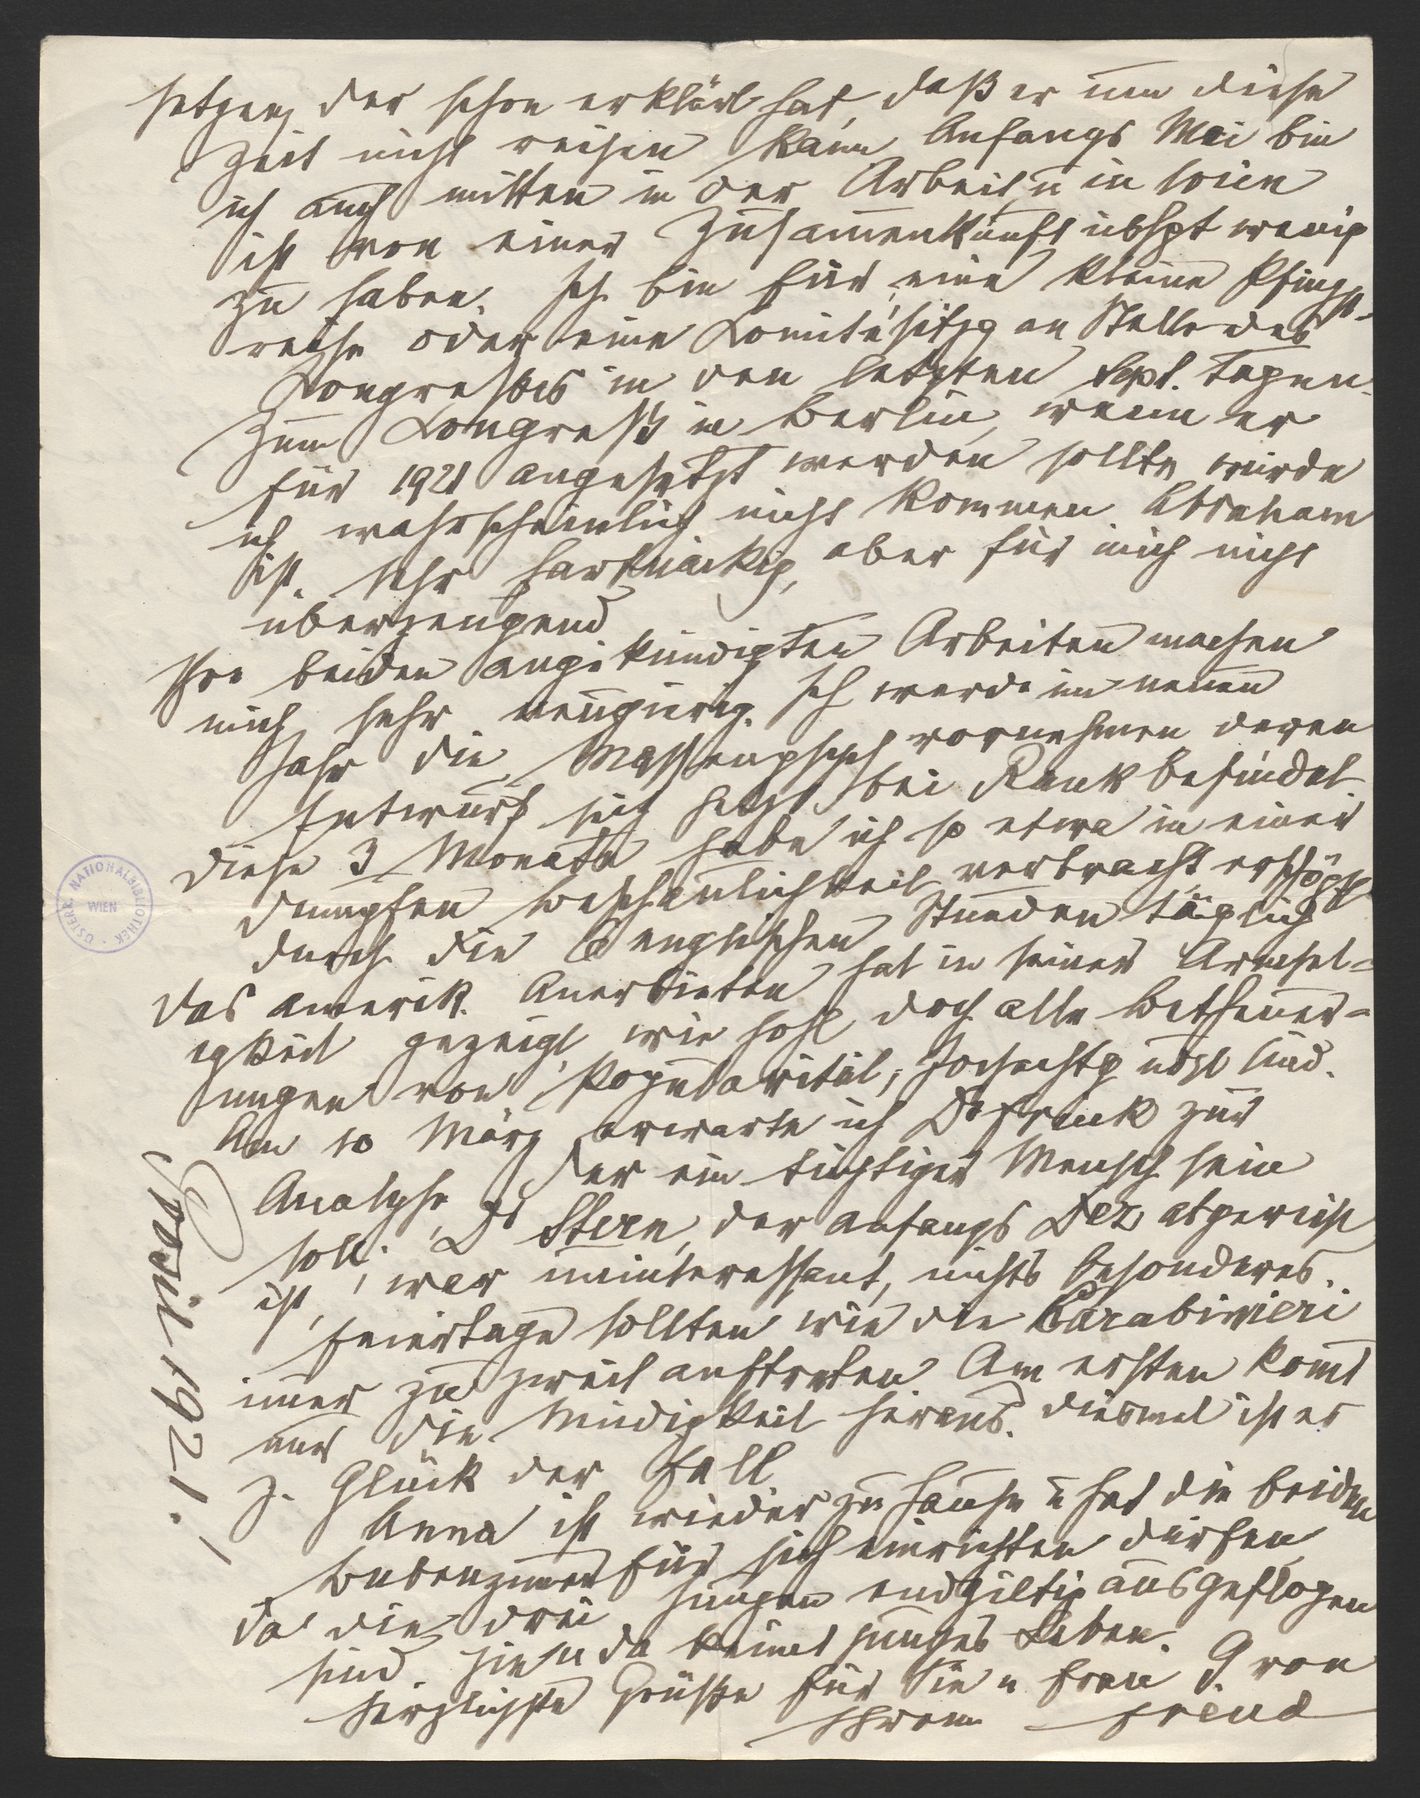 setzen, der schon erklärt hat, daß er um diese
Zeit nicht reisen kann. Anfangs Mai bin
ich auch mitten in der Arbeit, u in Wien
ist von einer Zusamenkunft übhpt wenig
zu haben. Ich bin für eine kleine Pfingst-
reise oder eine Comitésitzg an Stelle des
Congresses in den letzten Sept. Tagen.
Zum Congreß in Berlin, wenn er
für 1921 angesetzt werden sollte, würde
ich wahrscheinlich nicht kommen. Abraham
ist sehr hartnäckig, aber für mich nicht
überzeugend
Ihre beiden angekündigten Arbeiten machen
mich sehr neugierig. Ich werde im neuen
Jahr die Massenpsych vornehmen deren
Entwurf sich jetzt bei Rank befindet.
Diese 3 Monate habe ich so etwa in einer
dumpfen Beschaulichkeit verbracht, erschöpft
durch die 6 englischen Stunden täglich
Das amerik. Anerbieten hat in seiner Armsel-
igkeit gezeigt, wie hohl doch alle Betheuer-
ungen von Popularität, Hochachtg udgl sind.
Am 10 März erwarte ich Dr Frink zur
Analyse, der ein tüchtiger Mensch sein
soll; Dr Stern, der anfangs Dez abgereist
ist, war uninteressant, nichts besonderes.
Feiertage sollten wie die Carabinieri
imer zu zweit auftreten. Am ersten komt
nur die Müdigkeit heraus. Diesmal ist es
z. Glück der Fall
Anna ist wieder zu Hause u hat die beiden
Bubenzimer für sich einrichten dürfen,
da die drei Jungen endgiltig ausgeflogen
sind. Hie u da keimt junges Leben.
Herzlichste Grüße für Sie u Frau G von
Ihrem Freud
Prosit 1921.!
ÖSTERR. NATIONALBIBLIOTHEK
WIEN